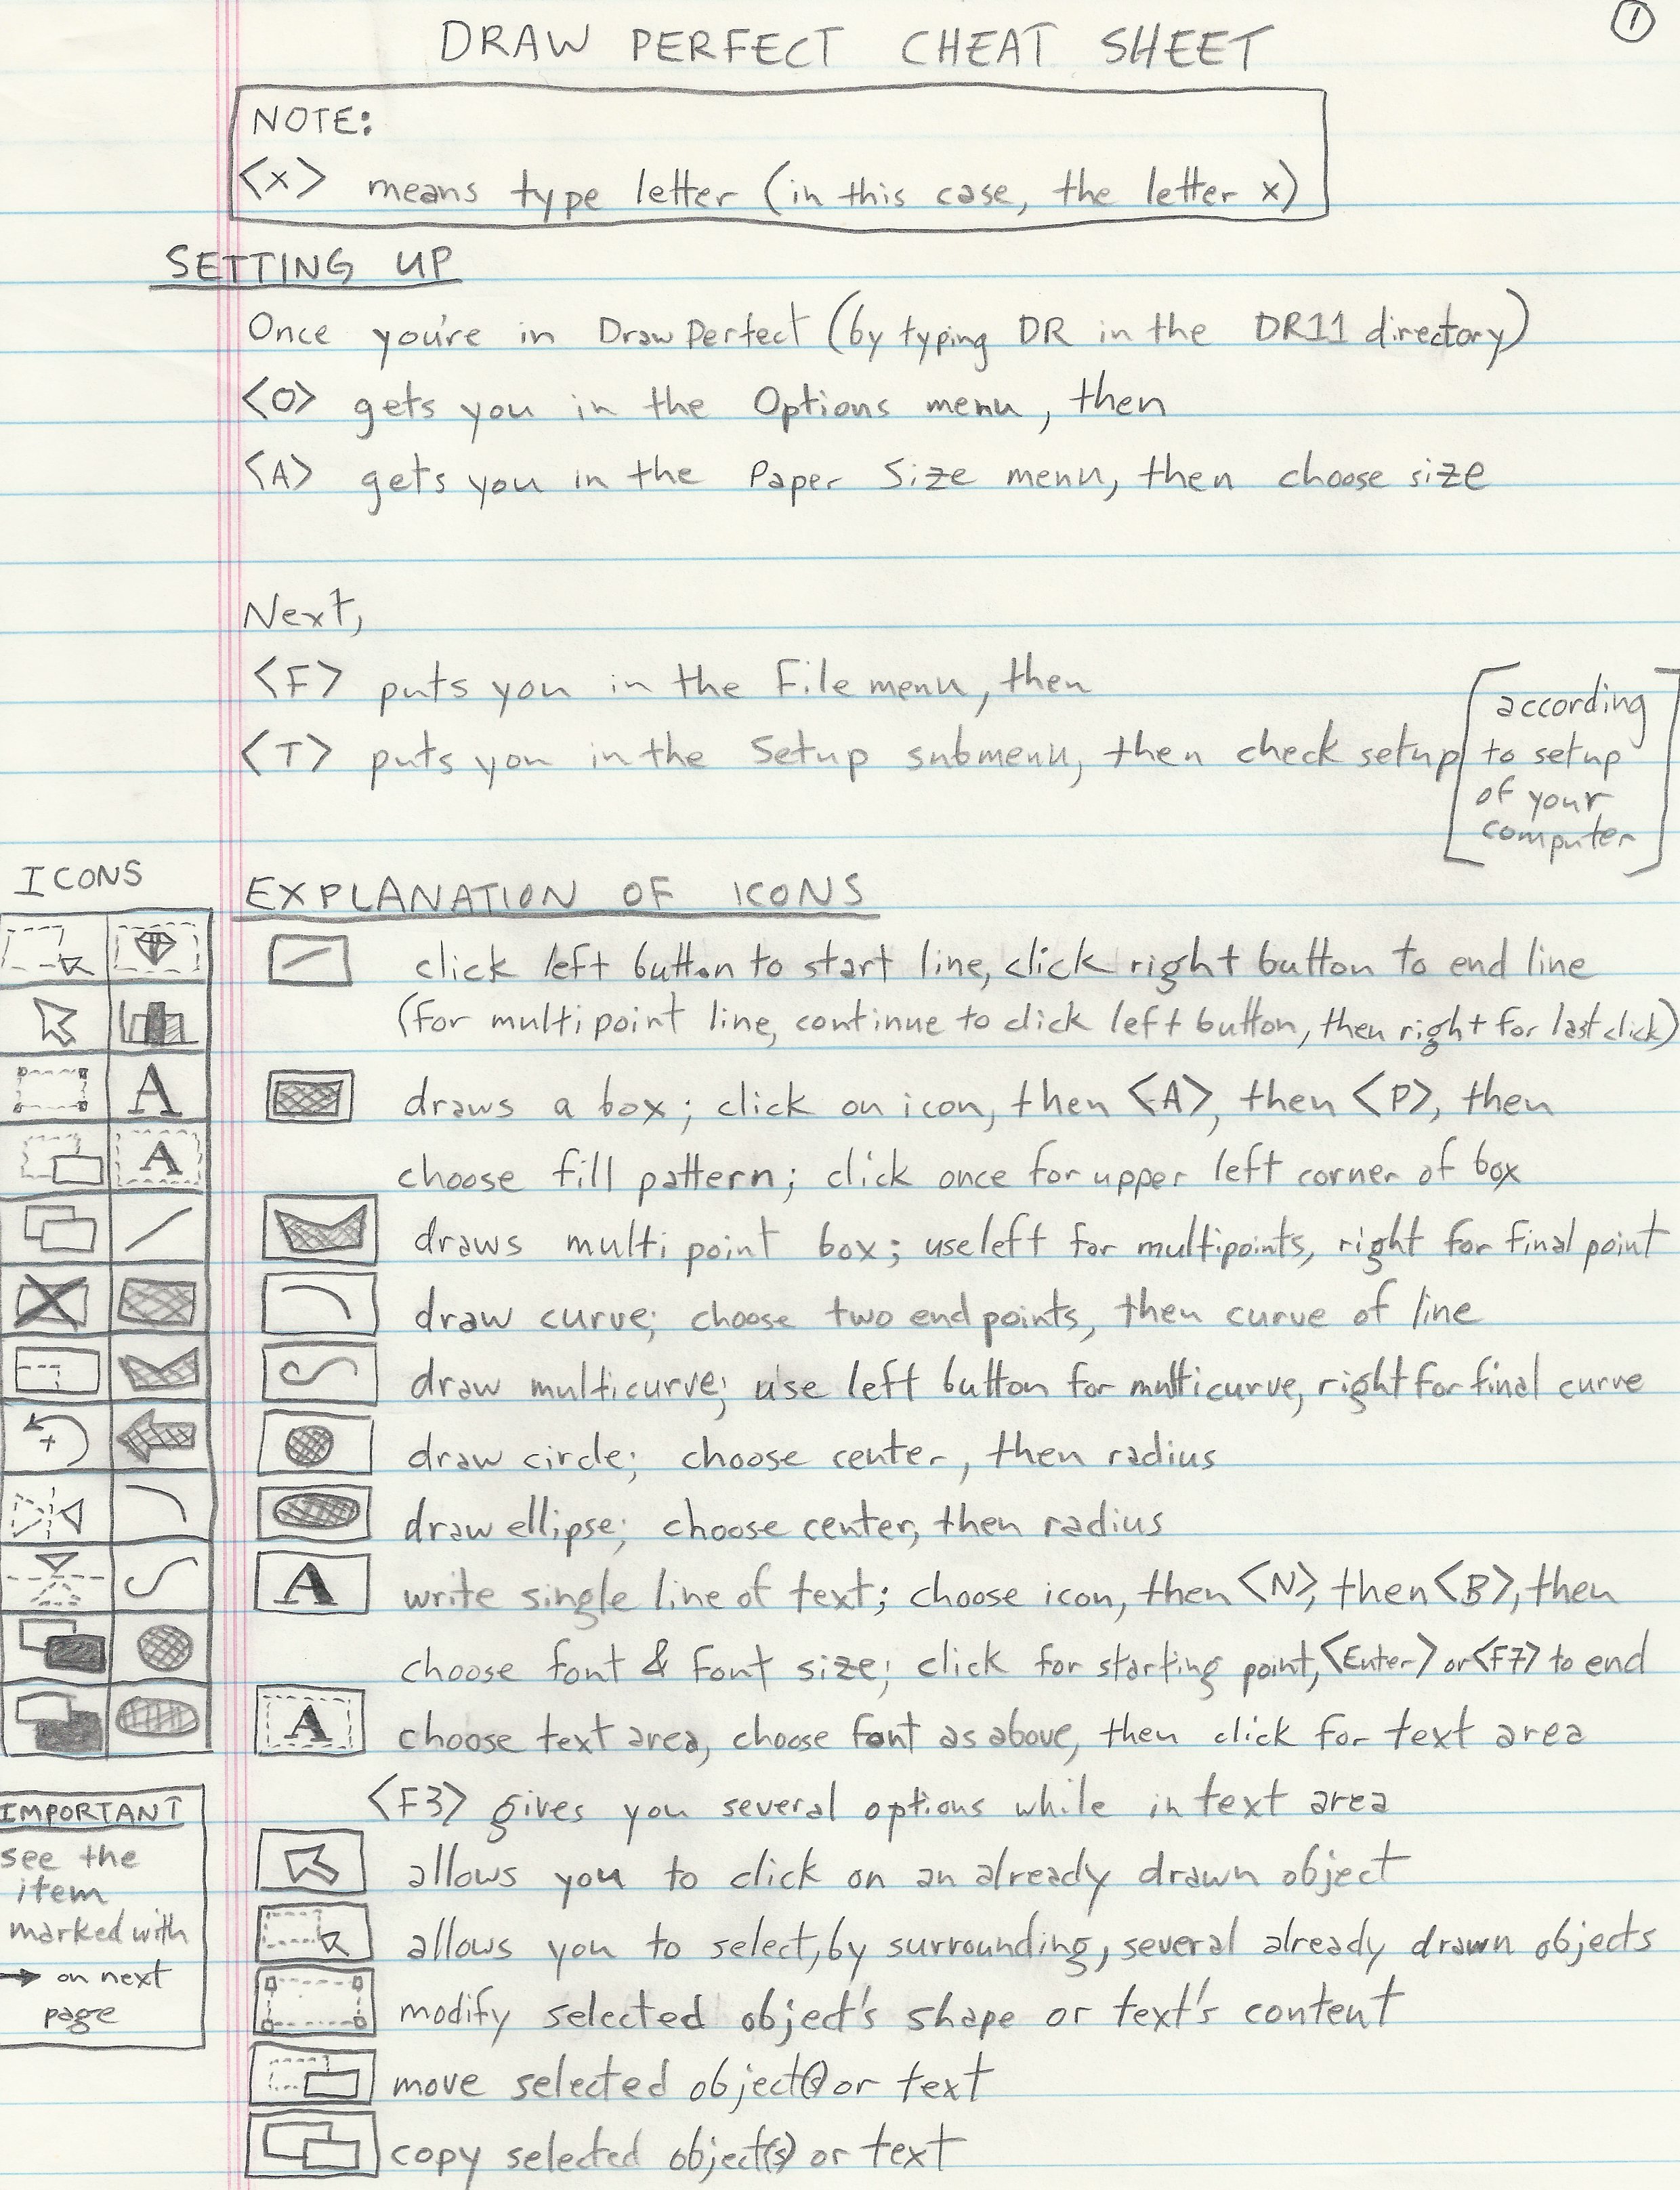 ①
DRAW PERFECT CHEAT SHEET
NOTE:
<x> means type letter (in this case, the letter x)
SETTING UP
Once you're in Draw Perfect (by typing DR in the DR11 directory)
<O> gets you in the Options menu, then
<A> gets you in the Paper Size menu, then choose size
Next,
<F> puts you in the File menu, then
<T> puts you in the Setup submenu, then check setup
[according
to setup
of your
computer]
ICONS
A
A
EXPLANATION OF ICONS
click left button to start line, click right button to end line
(for multipoint line, continue to click left button, then right for last click)
draws a box; click on icon, then <A>, then <P>, then
choose fill pattern; click once for upper left corner of box
draws multi point box; use left for multipoints, right for final point
draw curve; choose two end points, then curve of line
draw multicurve; use left button for multicurve, right for final curve
draw circle; choose center, then radius
draw ellipse; choose center, then radius
A write single line of text; choose icon, then <N>, then <B>, then
choose font & font size; click for starting point, <Enter> or <F7> to end
A choose text area, choose font as above, then click for text area
<F3> gives you several options while in text area
allows you to click on an already drawn object
allows you to select, by surrounding, several already drawn objects
modify selected object's shape or text's content
move selected object(s) or text
copy selected object(s) or text
IMPORTANT
see the
item
marked with
→ on next
page